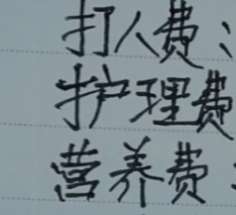 打人费：
护理费
营养费：